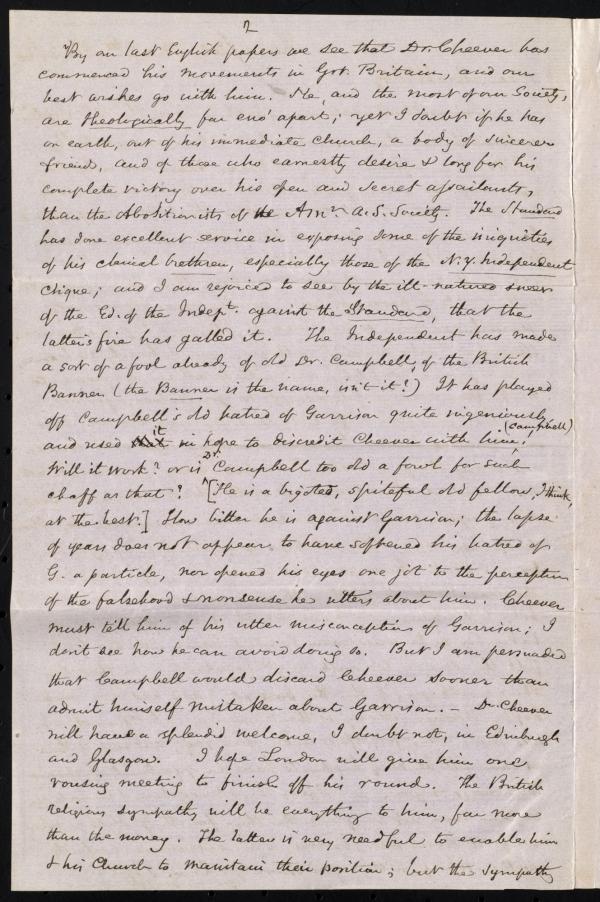 2
By our last English papers we see that Dr. Cheever has
commenced his movements in Gt. Britain, and our
best wishes go with him. He, and the most of our Society,
are theologically far eno' apart; yet I doubt if he has
on earth, out of his immediate church, a body of sincerer
friends, and of those who earnestly desire & long for his
complete victory over his open and secret assailants,
than the Abolitionists of the Amn. A.S. Society. The Standard
has done excellent service in exposing some of the iniquities
of his clerical brethren, especially those of the N.Y. Independent
clique; and I am rejoiced to see by the ill-natured sneer
of the Ed. of the Indept. against the Standard, that the
latter's fire has galled it. The Independent has made
a sort of a fool already of old Dr. Campbell, of the British
Banner (the Banner is the name, isn't it?) It has played
off Campbell's old hatred of Garrison quite ingeniously
and used it in hope to discredit Cheever with him, (Campbell)
Will it work? or is Dr. Campbell too old a fowl for such
chaff as that? [He is a bigoted, spiteful old fellow, I think,
at the best.] How bitter he is against Garrison; the lapse
of years does not appear to have softened his hatred of
G. a particle, nor opened his eyes one jot to the perception
of the falsehood & nonsense he utters about him. Cheever
must tell him of his utter misconception of Garrison; I
don't see how he can avoid doing so. But I am persuaded
that Campbell would discard Cheever sooner than
admit himself mistaken about Garrison. — Dr. Cheever
will have a splendid welcome, I doubt not, in Edinburgh
and Glasgow. I hope London will give him one
rousing meeting to finish off his round. The British
religious sympathy will be everything to him, far more
than the money. The latter is very needful to enable him
& his Church to maintain their position; but the sympathy